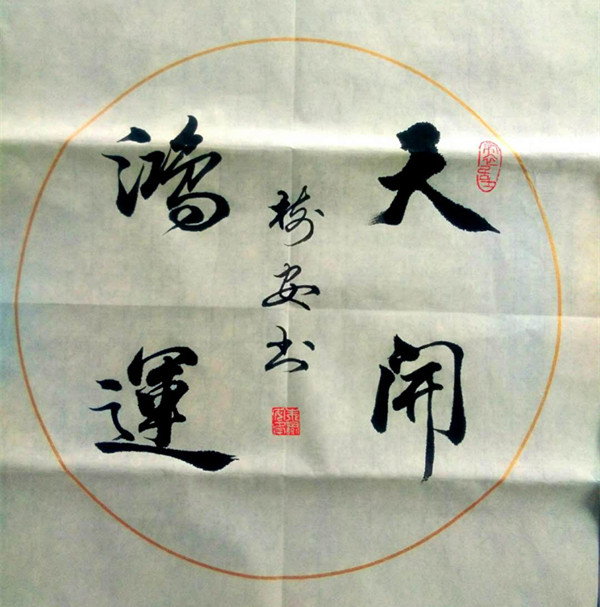 天開
鴻運
樹安书